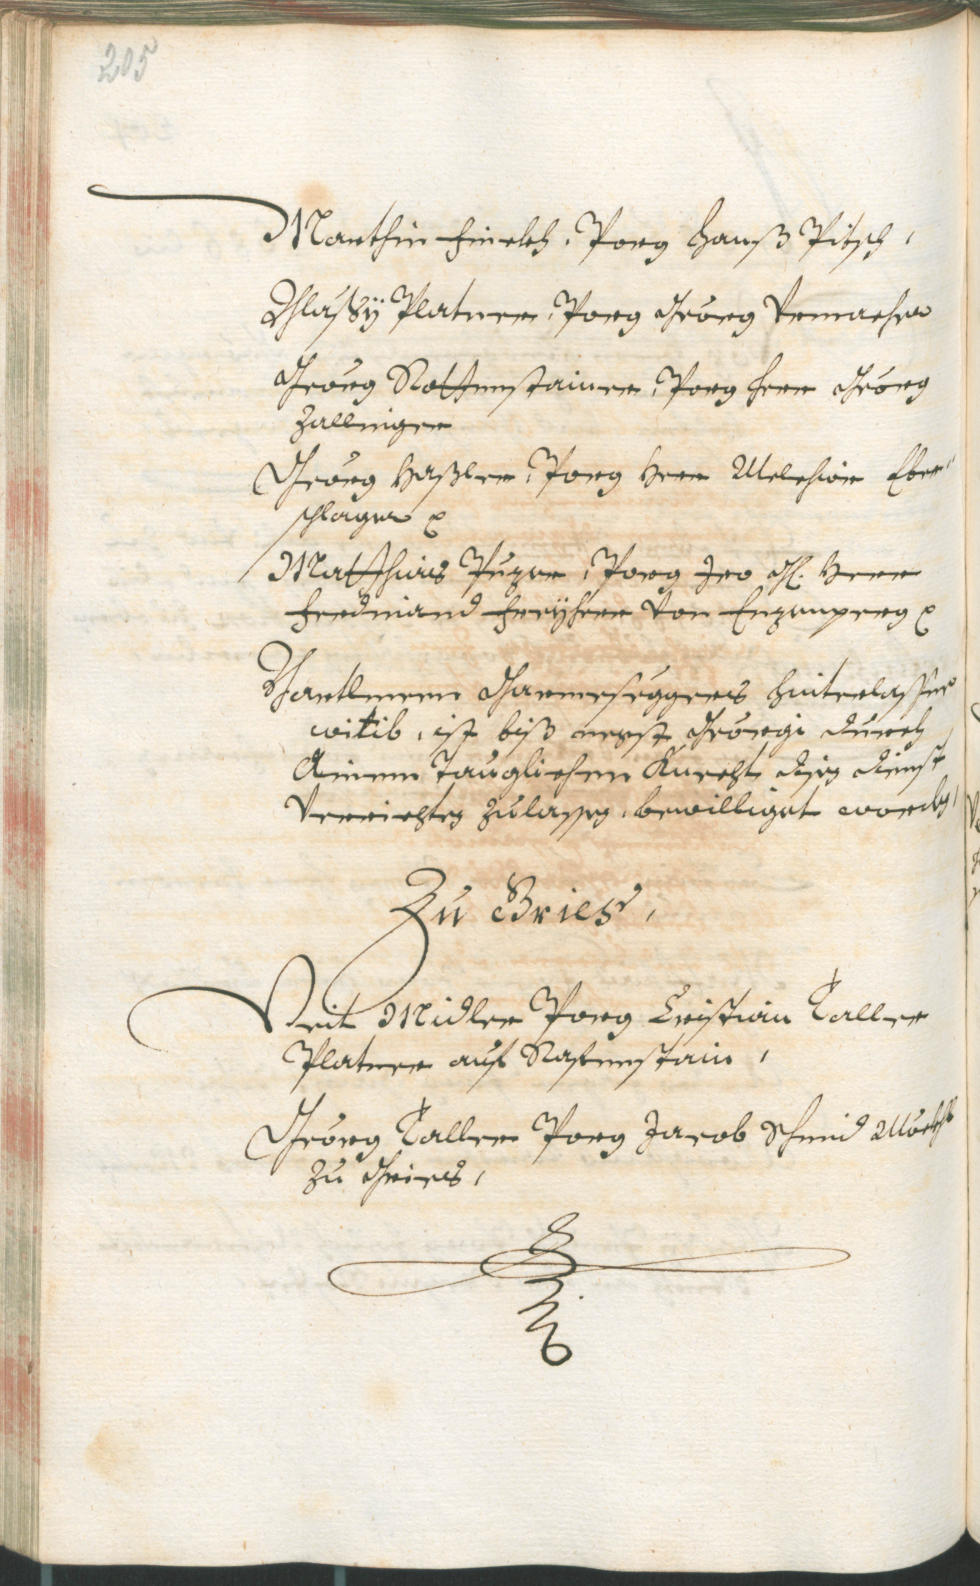 205
Marthin Hinelch, Porg Hanß Pitsch,
Bläsÿ Platner, Porg Georg Vermacher
Georg Rottenstainer, Porg Herr Georg
Zallinger
Georg Haßler, Porg Herr Melchior Eber-
schlager
Matthias Puzer, Porg Iro G. Herr
Ferdinand Freÿherr von Enzenperg
Bartlmeen hinterlassne
witib, ist biß negst Georgi durch
Ainen Tauglichen Knecht disen dienst
Verrichten zulassen, bewilliget worden,
Zu Gries,
Veit Midler Porg Cristian Taller
Platner auf Rafenstain,
Georg Taller Porg Jacob Schmid
zu Gries,